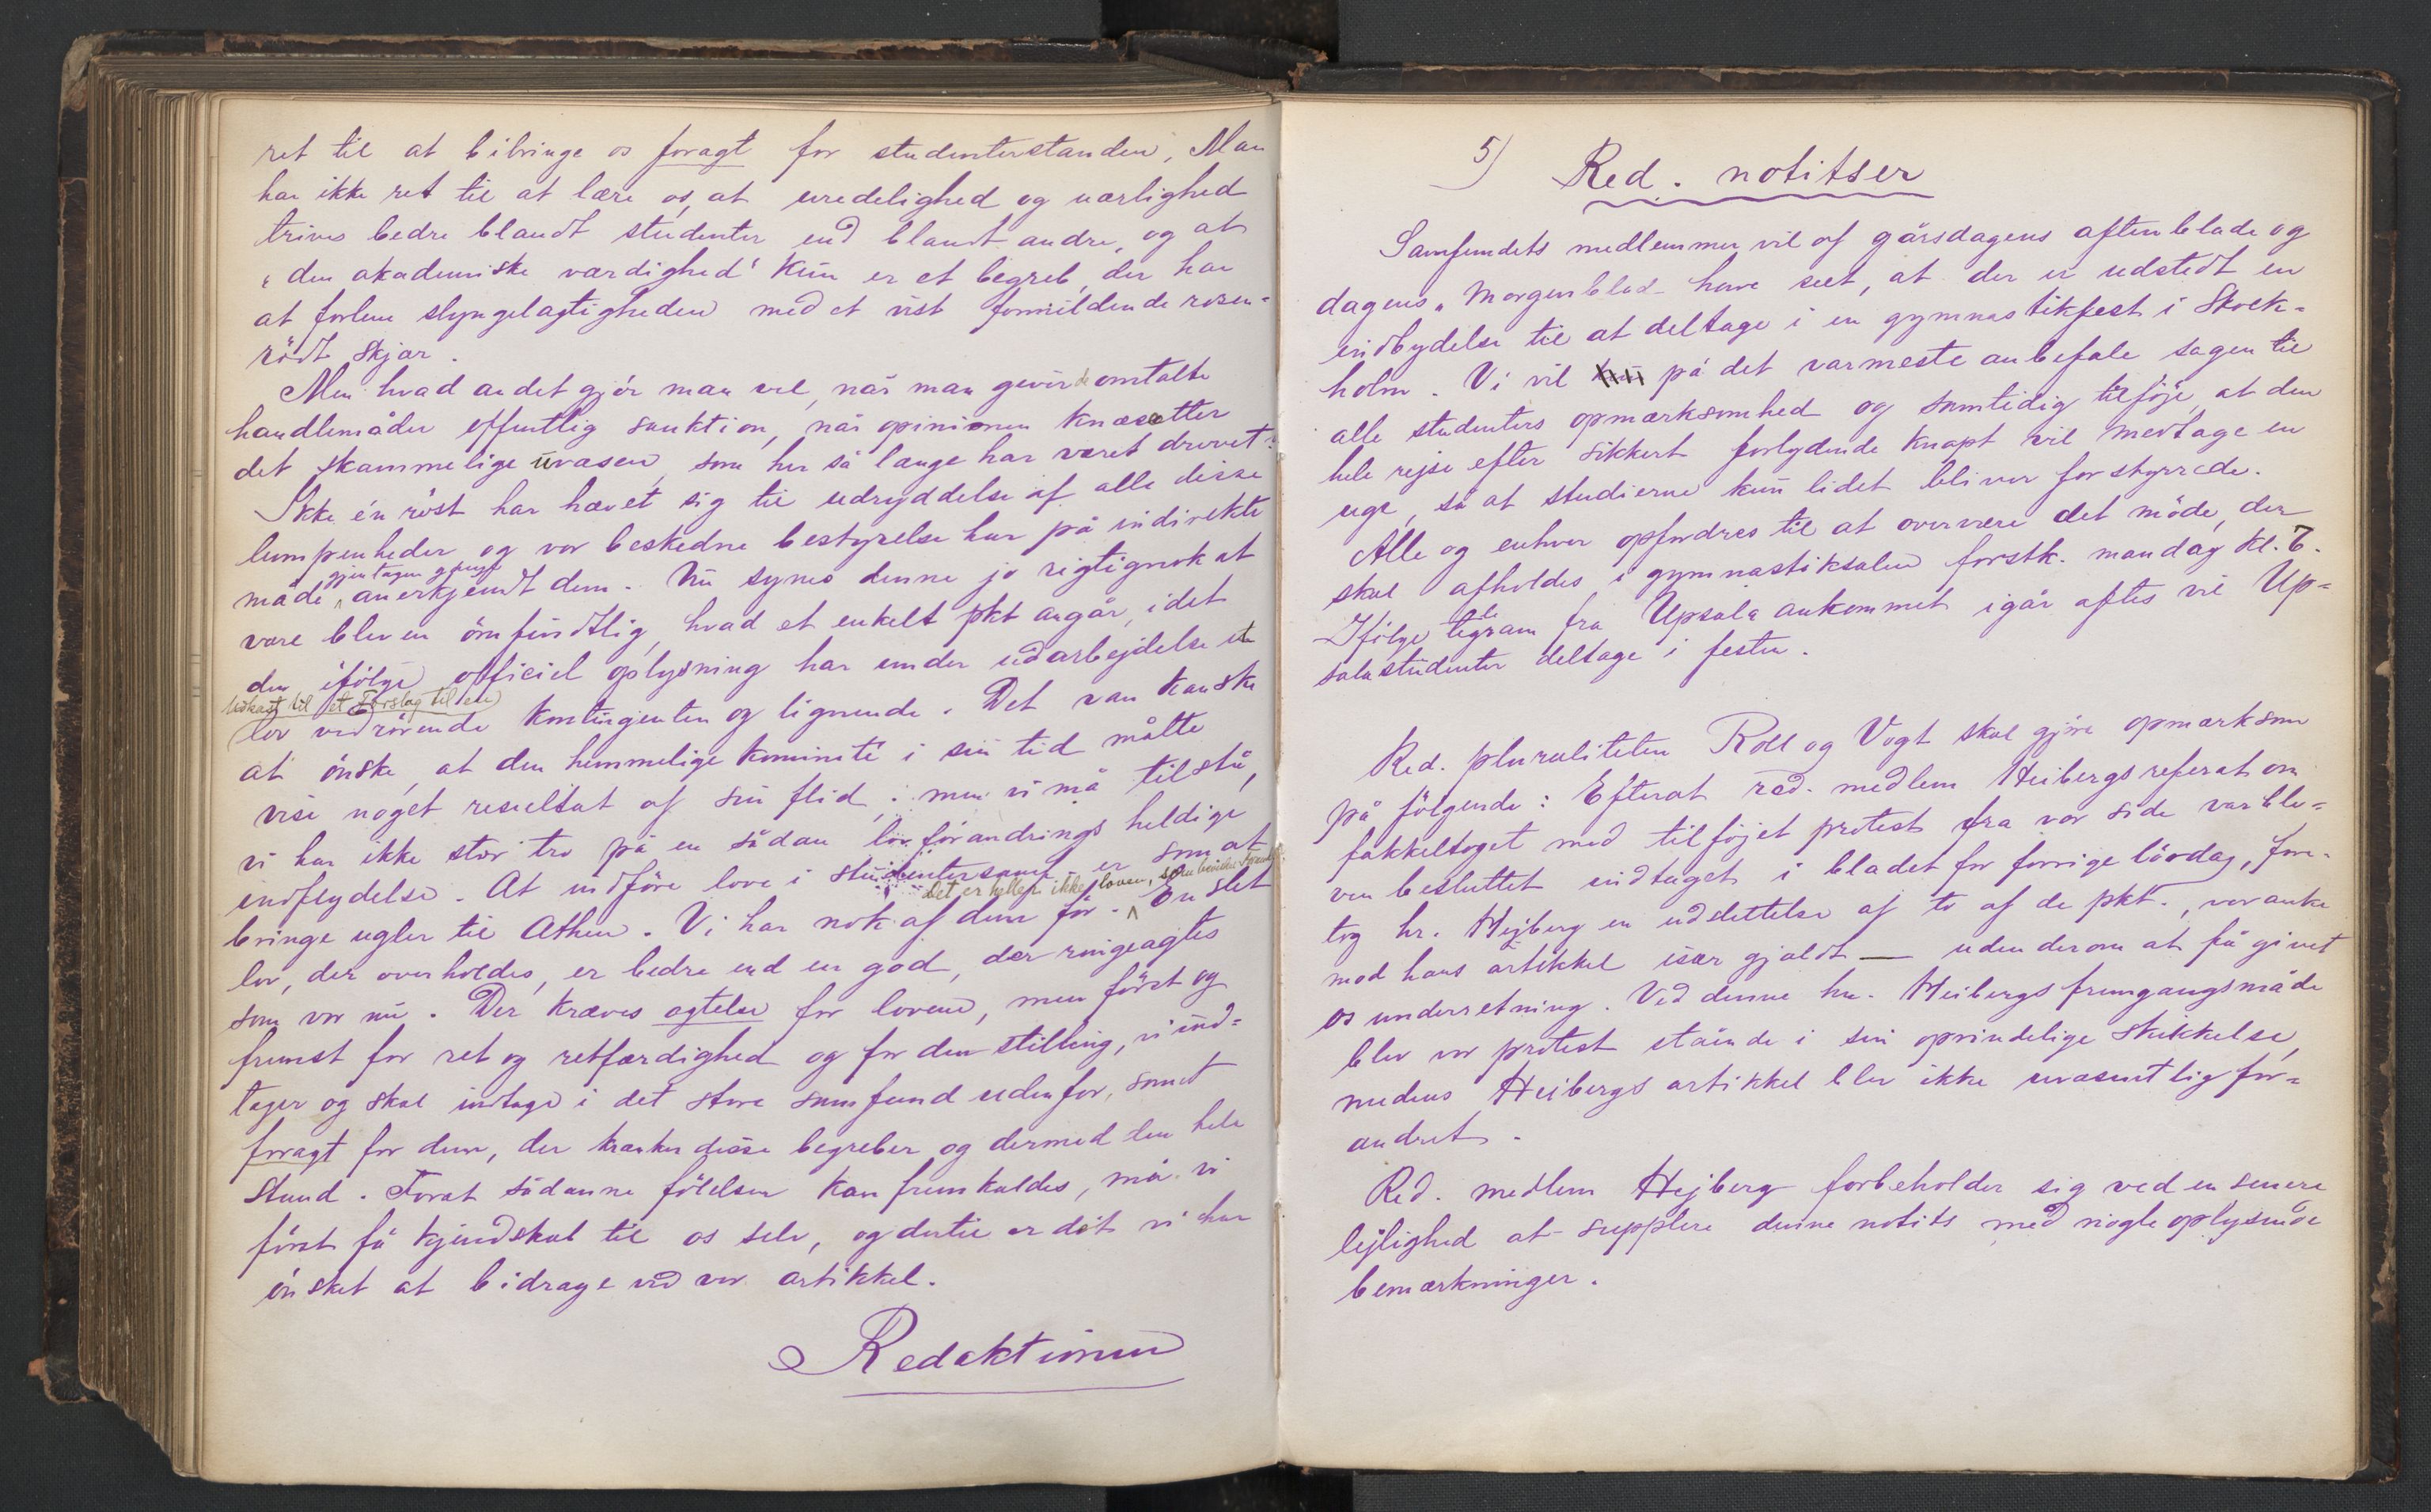 ret til at bibringe os foragt for studenterstanden, Man
har ikke ret til at lære os, at uredelighed og uærlighed
trives bedre blandt studenter end blandt andre, og at
"den akademiske værdighed" kun er et begreb, der har
at forlene slyngelagtigheden med et vist formildende rosen-
rödt skjær.
Men hvad andet gjör man vel, når man gir de omtalte
handlemåder offentlig sanktion, når opinionen knæsætter
det skammelige uvæsen, som her så længe har været drevet?
Ikke én röst har hævet sig til udryddelse af alle disse
lumpenheder og vor beskedne bestyrelse har på indirekte
gjentagen gange
måde anerkjendt dem. Nu synes denne jo rigtignok at
være bleven ömfindtlig, hvad et enkelt pkt angår, idet
den ifölge officiel oplysning har under udarbejdelse et
Udkast til et Forslag til en
lov vedrörende kontingenten og lignende. Det var kanske
at önske, at den hemmelige kommité i sin tid måtte
vise noget resultat af sin flid; men vi må tilstå,
vi har ikke stor tro på en sådan lovforandrings heldige
indflydelse. At indföre love i studentersamf. er som at
Det er heller ikke loven, som
bringe ugler til Athen. Vi har nok af dem för. En slet
lov, der overholdes, er bedre end en god, der ringeagtes
som vor nu. Der kræves agtelse for lovene, men först og
fremst for ret og retfærdighed og for den stilling, vi ind-
tager og skal indtage i det store samfund udenfor, samt
foragt for dem, der krænker disse begreber og dermed den hele
stand. Forat sådanne fölelser kan fremkaldes, må vi
först få kjendskab til os selv, og dertil er det vi har
önsket at bidrage ved vor artikkel.
Redaktionen
5) Red. notitser
Samfundets medlemmer vil af gårsdagens aftenblade og
dagens "Morgenblad" have seet, at der er udstedt en
indbydelse til at deltage i en gymnastikfest i Stock-
holm. Vi vil på det varmeste anbefale sagen til
alle studenters opmærksomhed og samtidig tilföje, at den
hele rejse efter sikkert forlydende knapt vil medtage en
uge, så at studierne kun lidet bliver forstyrrede.
Alle og enhver opfordres til at overvære det möde, der
skal afholdes i gymnastiksalen förstk. mandag kl. 7.
Ifölge telegram fra Upsala ankommet igår aftes vil Up-
salastudenter deltage i festen.
Red. pluraliteten Roll og Vogt skal gjöre opmærksom
på fölgende: Efterat red. medlem Heibergs referat om
fakkeltoget med tilföjet protest fra vor side var ble-
ven besluttet indtaget i bladet for forrige lördag, fore-
tog hr. Hejberg en udslettelse af to af de pkt., vor anke
mod hans artikkel især gjaldt — uden derom at få givet
os underretning. Ved denne hr. Heibergs fremgangsmåde
blev vor protest stående i sin oprindelige skikkelse,
medens Heibergs artikkel blev ikke uvæsentlig for-
andret.
Red. medlem Hejberg forbeholder sig ved en senere
lejlighed at supplere denne notits med nogle oplysende
bemærkninger.